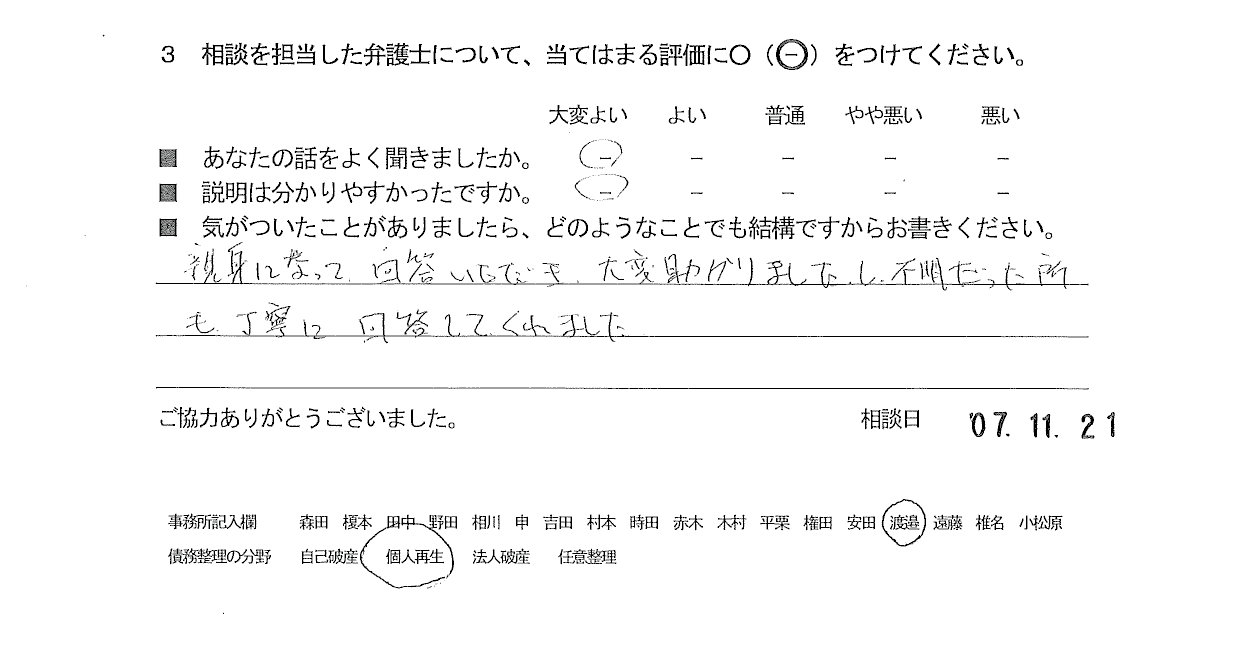 3 相談を担当した弁護士について、当てはまる評価に〇（㊀）をつけてください。
大変よい よい 普通 やや悪い 悪い
■ あなたの話をよく聞きましたか。 － － － － －
■ 説明は分かりやすかったですか。 － － － － －
■ 気がついたことがありましたら、どのようなことでも結構ですからお書きください。
親身になって、回答いただき、大変助かりましたし、不明だった所
も、丁寧に回答してくれました
ご協力ありがとうございました。 相談日 '07. 11. 21
事務所記入欄 森田 榎本 田中 野田 相川 申 吉田 村本 時田 赤木 木村 平栗 権田 安田 渡邉 遠藤 椎名 小松原
債務整理の分野 自己破産 個人再生 法人破産 任意整理